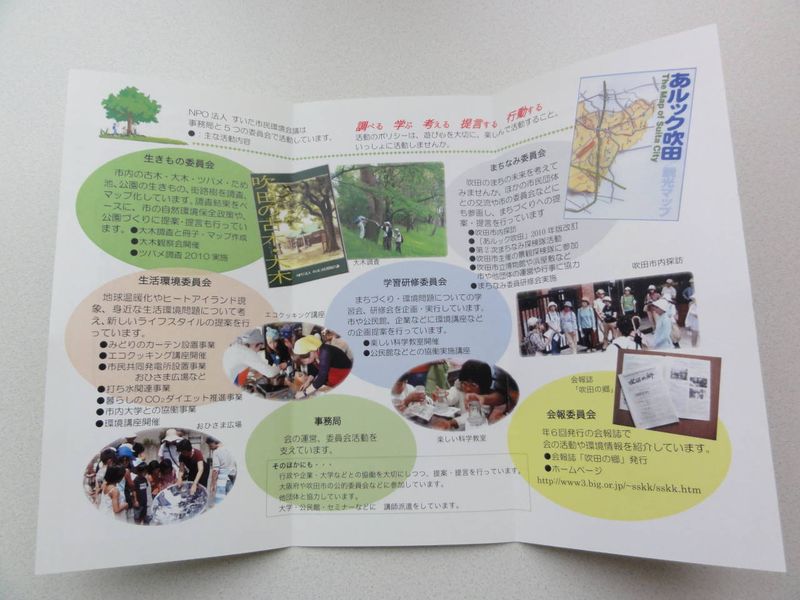 NPO 法人 すいた市民環境会議は
事務局と5つの委員会で活動しています。
●：主な活動内容
調べる 学ぶ 考える 提言する 行動する
活動のポリシーは、遊び心を大切に、楽しんで活動すること。
いっしょに活動しませんか。
あルック吹田
The Map of Suita City
観光マップ
生きもの委員会
市内の古木・大木・ツバメ・ため
池、公園の生きもの、街路樹を調査、
マップ化しています。調査結果をベ
ースに、市の自然環境保全政策や、
公園づくりに提案・提言も行ってい
ます。
●大木調査と冊子・マップ作成
●大木観察会開催
●ツバメ調査 2010 実施
吹田の古木・大木
大木調査
まちなみ委員会
吹田のまちの未来を考えて
みませんか。ほかの市民団体
との交流や市の委員会などに
も参画し、まちづくりへの提
案・提言を行っています
●吹田市内探訪
●「あルック吹田」2010 年版改訂
●第2次まちなみ探検隊活動
●吹田市主催の景観探検隊に参加
●吹田市立博物館や浜屋敷など
市や他団体の運営や行事に協力
●まちなみ委員研修会実施
吹田市内探訪
生活環境委員会
地球温暖化やヒートアイランド現
象、身近な生活環境問題について考
え、新しいライフスタイルの提案を行
っています。
●みどりのカーテン設置事業
●エコクッキング講座開催
●市民共同発電所設置事業
おひさま広場など
●打ち水関連事業
●暮らしの CO₂ダイエット推進事業
●市内大学との協働事業
●環境講座開催
おひさま広場
エコクッキング講座
学習研修委員会
まちづくり・環境問題についての学
習会、研修会を企画・実行しています。
市や公民館、企業などに環境講座など
の企画提案を行っています。
●楽しい科学教室開催
●公民館などとの協働実施講座
楽しい科学教室
事務局
会の運営、委員会活動を
支えています。
そのほかにも・・・
行政や企業・大学などとの協働を大切にしつつ、提案・提言を行っています。
大阪府や吹田市の公的委員会などに参加しています。
他団体と協力しています。
大学・公民館・セミナーなどに 講師派遣をしています。
会報誌
「吹田の郷」
会報委員会
年6回発行の会報誌で
会の活動や環境情報を紹介しています。
●会報誌「吹田の郷」発行
●ホームページ
http://www3.big.or.jp/~sskk/sskk.htm